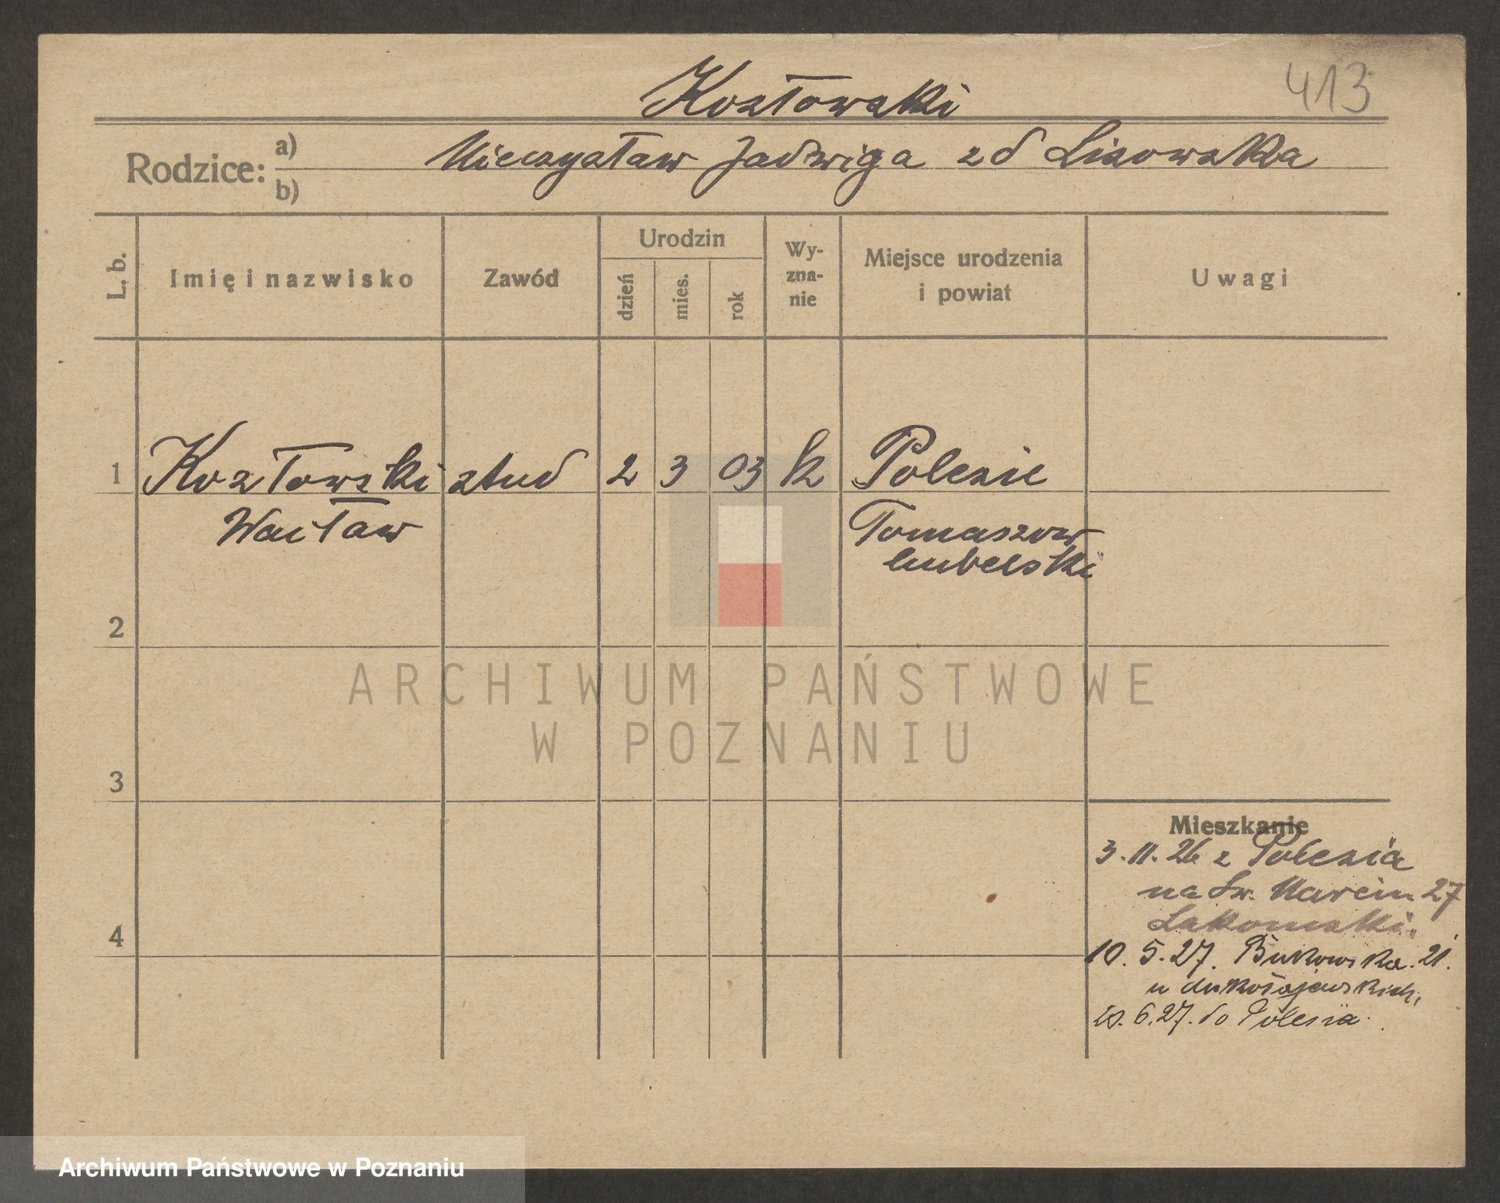 413
Kozłowski
Rodzice: a) Mieczysław Jadwiga zd Lisowska
b)
L. b. Imię i nazwisko Zawód Urodzin dzień mies. rok Wyznanie Miejsce urodzenia i powiat Uwagi
1 Kozłowski stud 2 3 03 k Polesie
Wacław Tomaszow
lubelski
2
ARCHIWUM PAŃSTWOWE
W POZNANIU
3
Mieszkanie
3.11.26 z Polesia
na Św. Marcin 27
4
10.5.27. Bukowska 21.
u
6.27. do Polesia
Archiwum Państwowe w Poznaniu